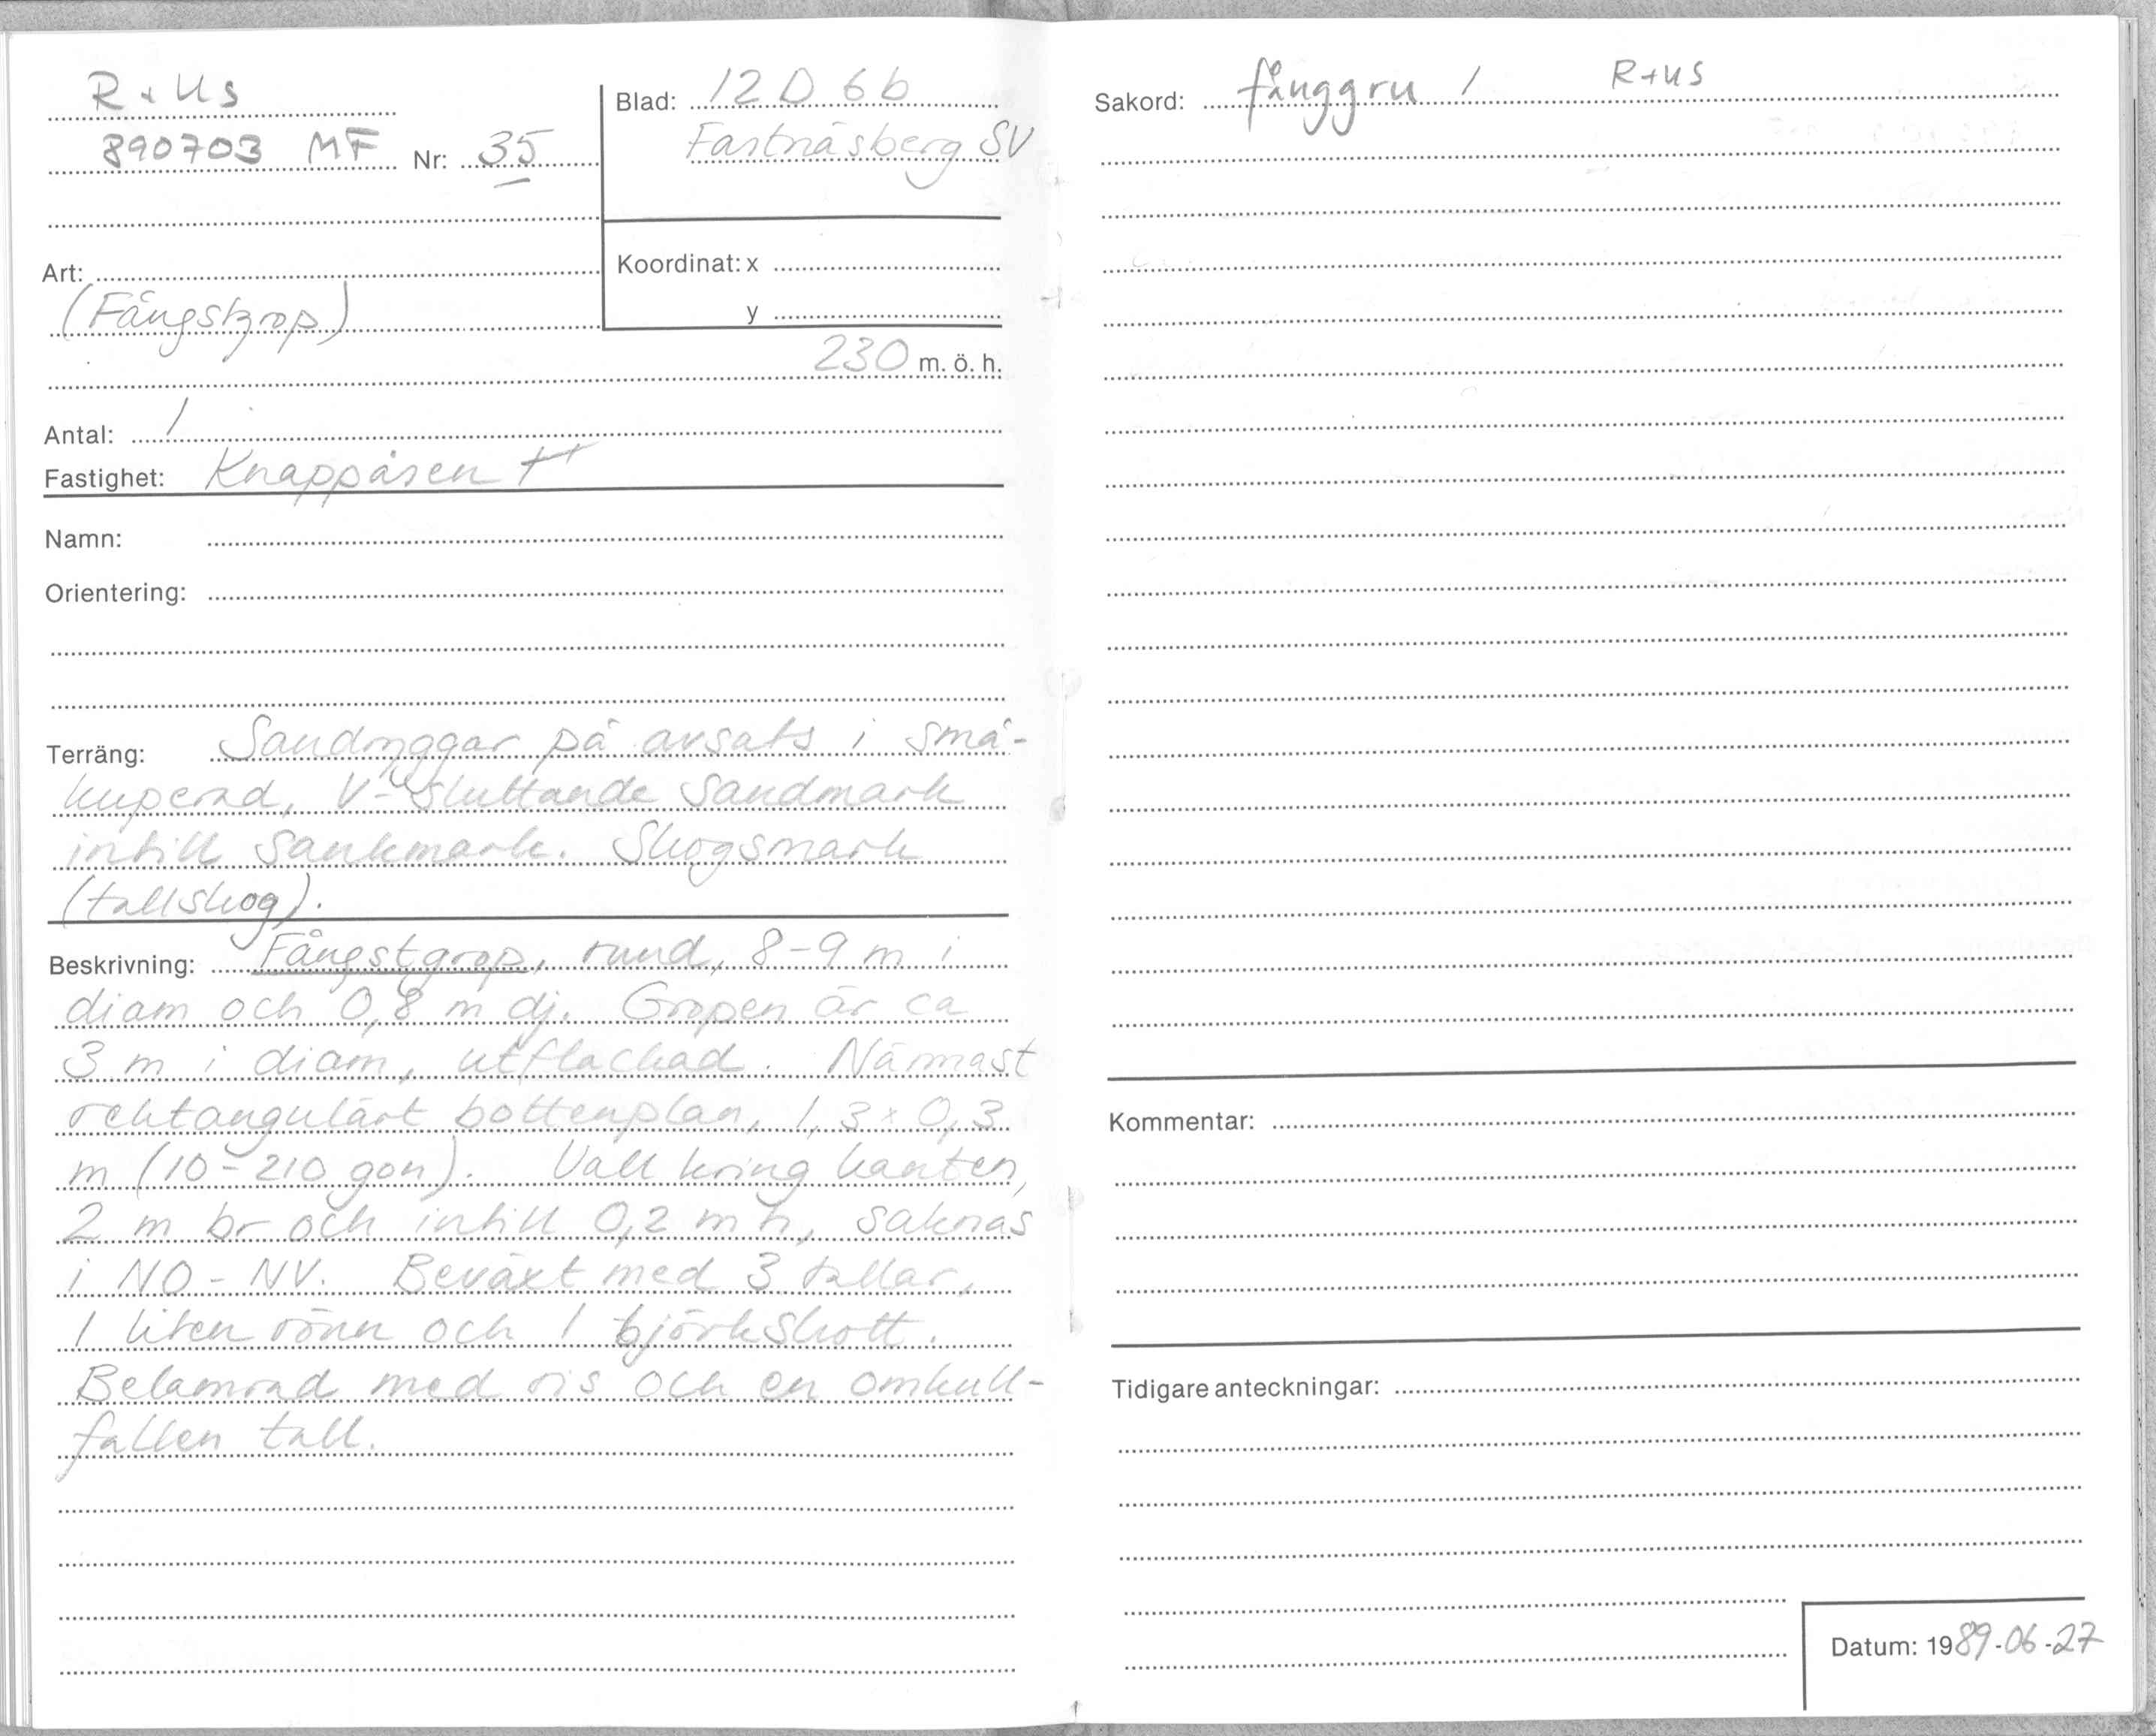 R+Us
890703 MF Nr: 35
Blad: 12D 6b
Fastnäsberg SV
Art:
(Fångstgrop)
Koordinat: x
y
230 m.ö.h.
Antal: 1
Fastighet: Knappåsen
Namn:
Orientering:
Terräng: Sandryggar på avsats i små-
kuperad, V-sluttande sandmark
intill sankmark. Skogsmark
(tallskog).
Beskrivning: Fångstgrop, rund, 8-9 m i
diam och 0,8 m dj. Gropen är ca
3 m i diam, utflackad. Närmast
rektangulärt bottenplan, 1,3 x 0,3
m (10-210 gon). Vall kring kanten,
2 m br och intill 0,2 m h, saknas
i NO-NV. Beväxt med 3 tallar,
1 liten rönn och 1 björkskott.
Belamrad med ris och en omkull-
fallen tall.
Sakord: fånggru 1 R+US
Kommentar:
Tidigare anteckningar:
Datum: 1989-06-27